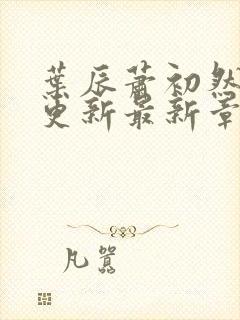 葉辰蕭初然
更新最新章
凡囂